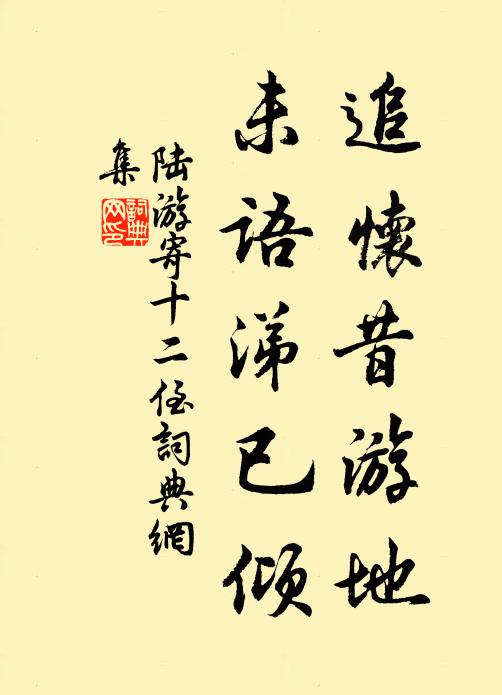 追懷昔游地
未語涕已傾
陸游寄十二侄詞典網
集
詞典
网印